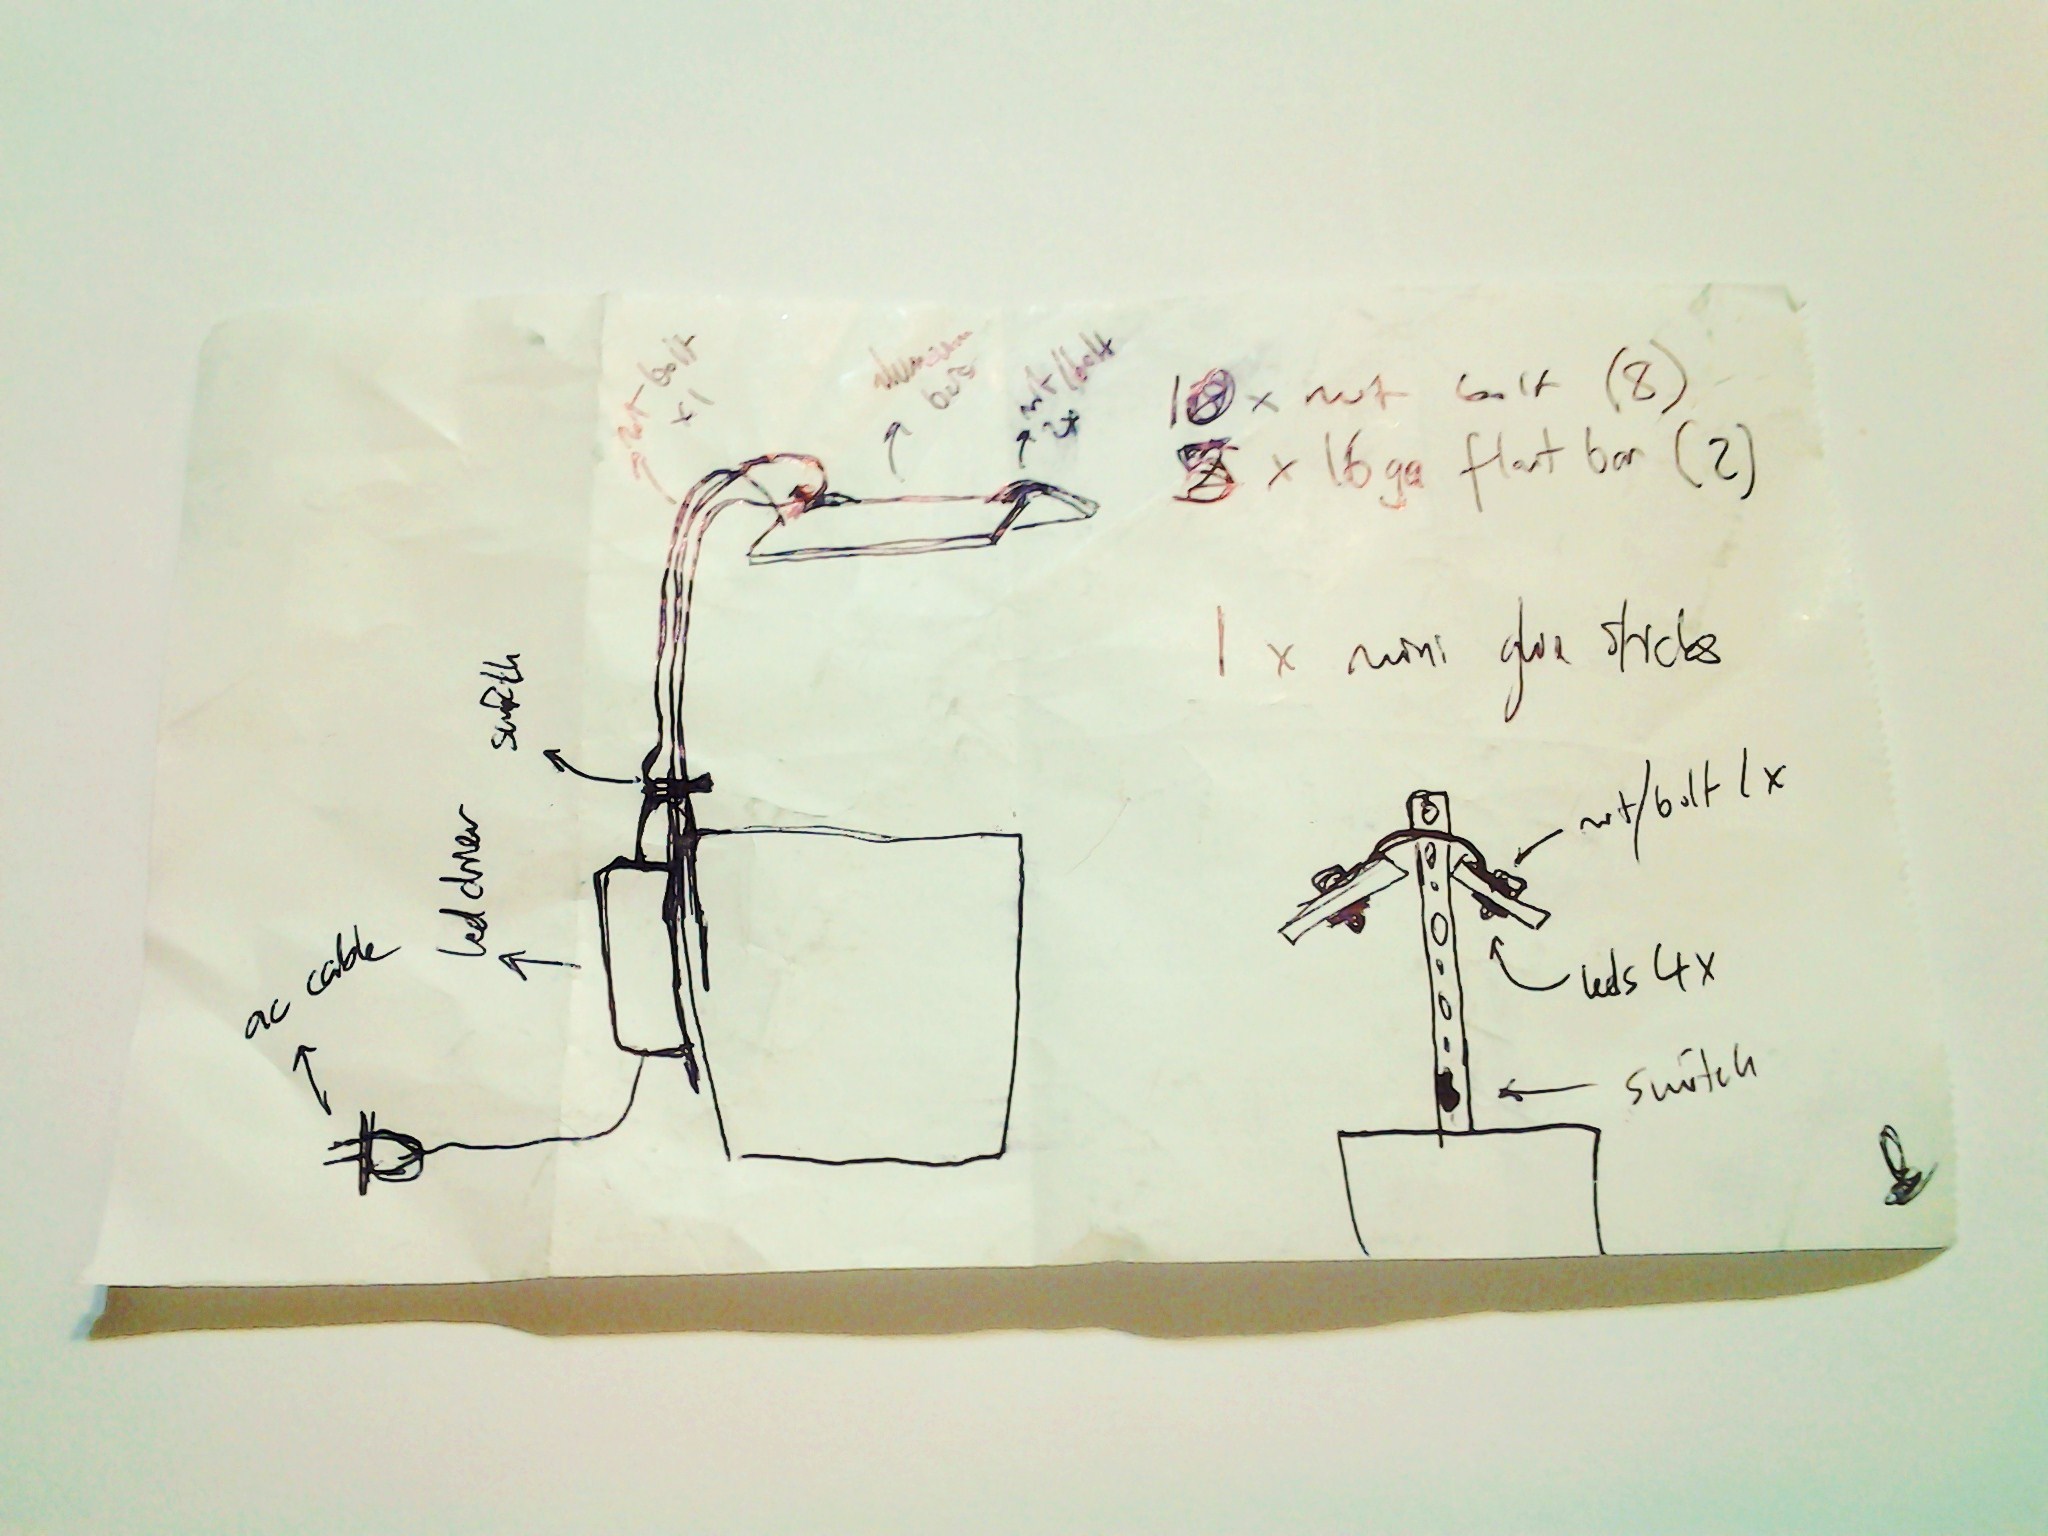 nut bolt
x1
aluminium
bars
nut/bolt
2x
x nut bolt (8)
x 16 ga flat bar (2)
1 x mini glue sticks
switch
led driver
ac cable
nut/bolt 1x
leds 4x
switch